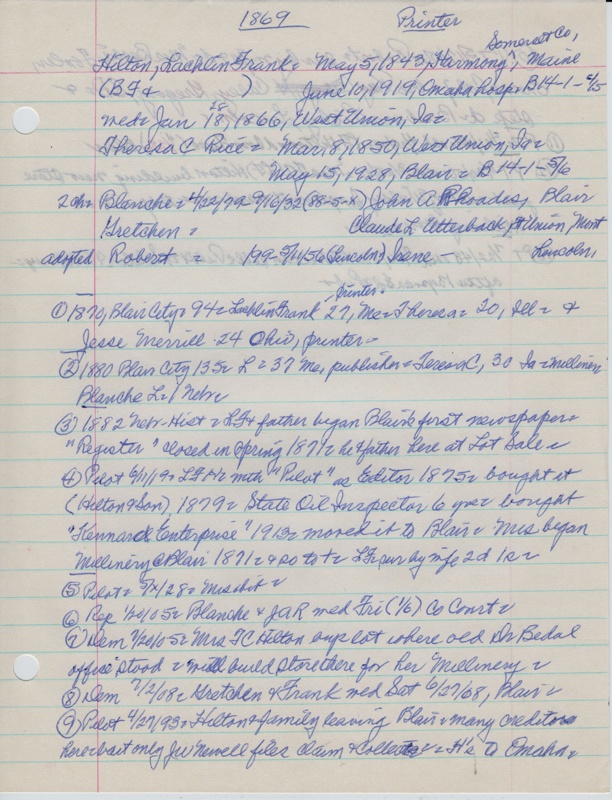 1869 Printer
Somerset Co,
Hilton, Lachlin Frank = May 5, 1843, Harmony, Maine
(B F & ) June 10, 1919, Omaha hosp = B14-1-4/5
med = Jan 18, 1866, West Union, Ia =
28
Theresa C Rice = Mar, 8, 1850, West Union, Ia =
May 15, 1928, Blair = B 14-1-5/6
2 ch = Blanche = 4/22/79 - 9/16/32 (88-5-x) John A Rhoades, Blair
Gretchen = Claude L Utterback, Union, Mont
adopted Robert = 1/79 - 5/11/56 (Lincoln) Irene - Lincoln,
① 1870, Blair City = 94 = Lachlin Frank 27, Me = Theresa = 20, Ill = &
printer =
Jesse Merrill - 24 Ohio, printer =
② 1880 Blair City 135 = L = 37 Me, publisher = Teresa C, 30 Ia = milliner
Blanche L = 1 Nebr =
③ 1882 Nebr-Hist = LF & father began Blair's first newspaper =
"Register" closed in spring 1871 = he & father here at Lot Sale =
④ Pilot 6/11/19 = LF H = with "Pilot" as Editor 1875 = bought it
(Hilton & Son) 1879 = State Oil Inspector 6 yr = bought
"Kennard Enterprise" 1913 = moved it to Blair = Mrs began
Millinery @ Blair 1871 = & so to t = LF sur by wife 2d 1s =
⑤ Pilot = 5/ /28 = Mrs obit =
⑥ Rep 1/20/05 = Blanche & JaR med Fri (1/6) Co Court =
⑦ Dem 1/20/05 = Mrs TC Hilton buys lot where old Dr Bedal
office stood = will build store there for her Millinery =
⑧ Dem 7/2/08 = Gretchen & Frank med Sat 6/27/08, Blair =
⑨ Pilot 4/27/93 = Hilton & family leaving Blair = many creditors
here but only Newell files claim & collects = H's to Omaha =